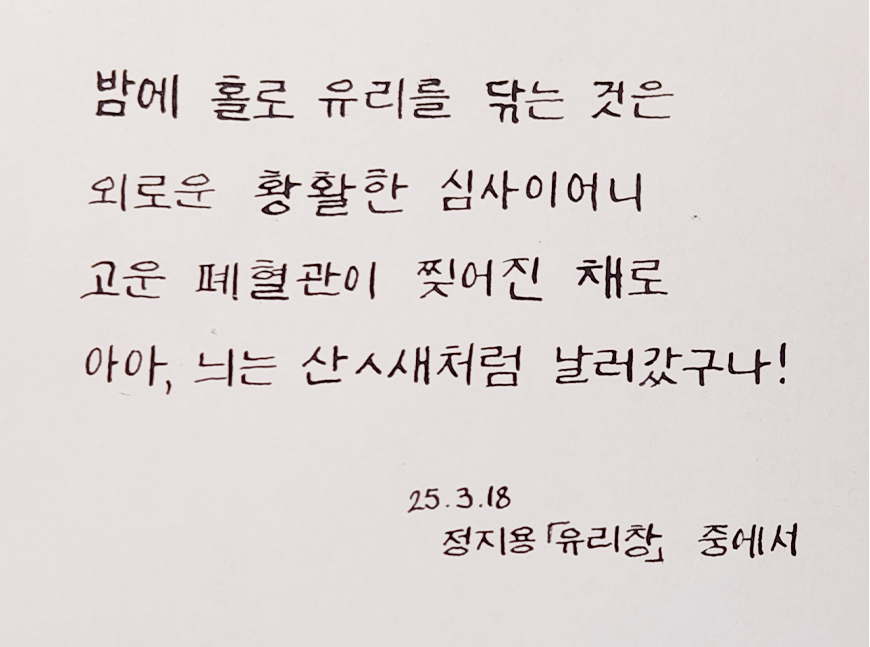 밤에 홀로 유리를 닦는 것은
외로운 황활한 심사이어니
고운 폐혈관이 찢어진 채로
아아, 늬는 산ㅅ새처럼 날러갔구나!
25.3.18
정지용「유리창」 중에서